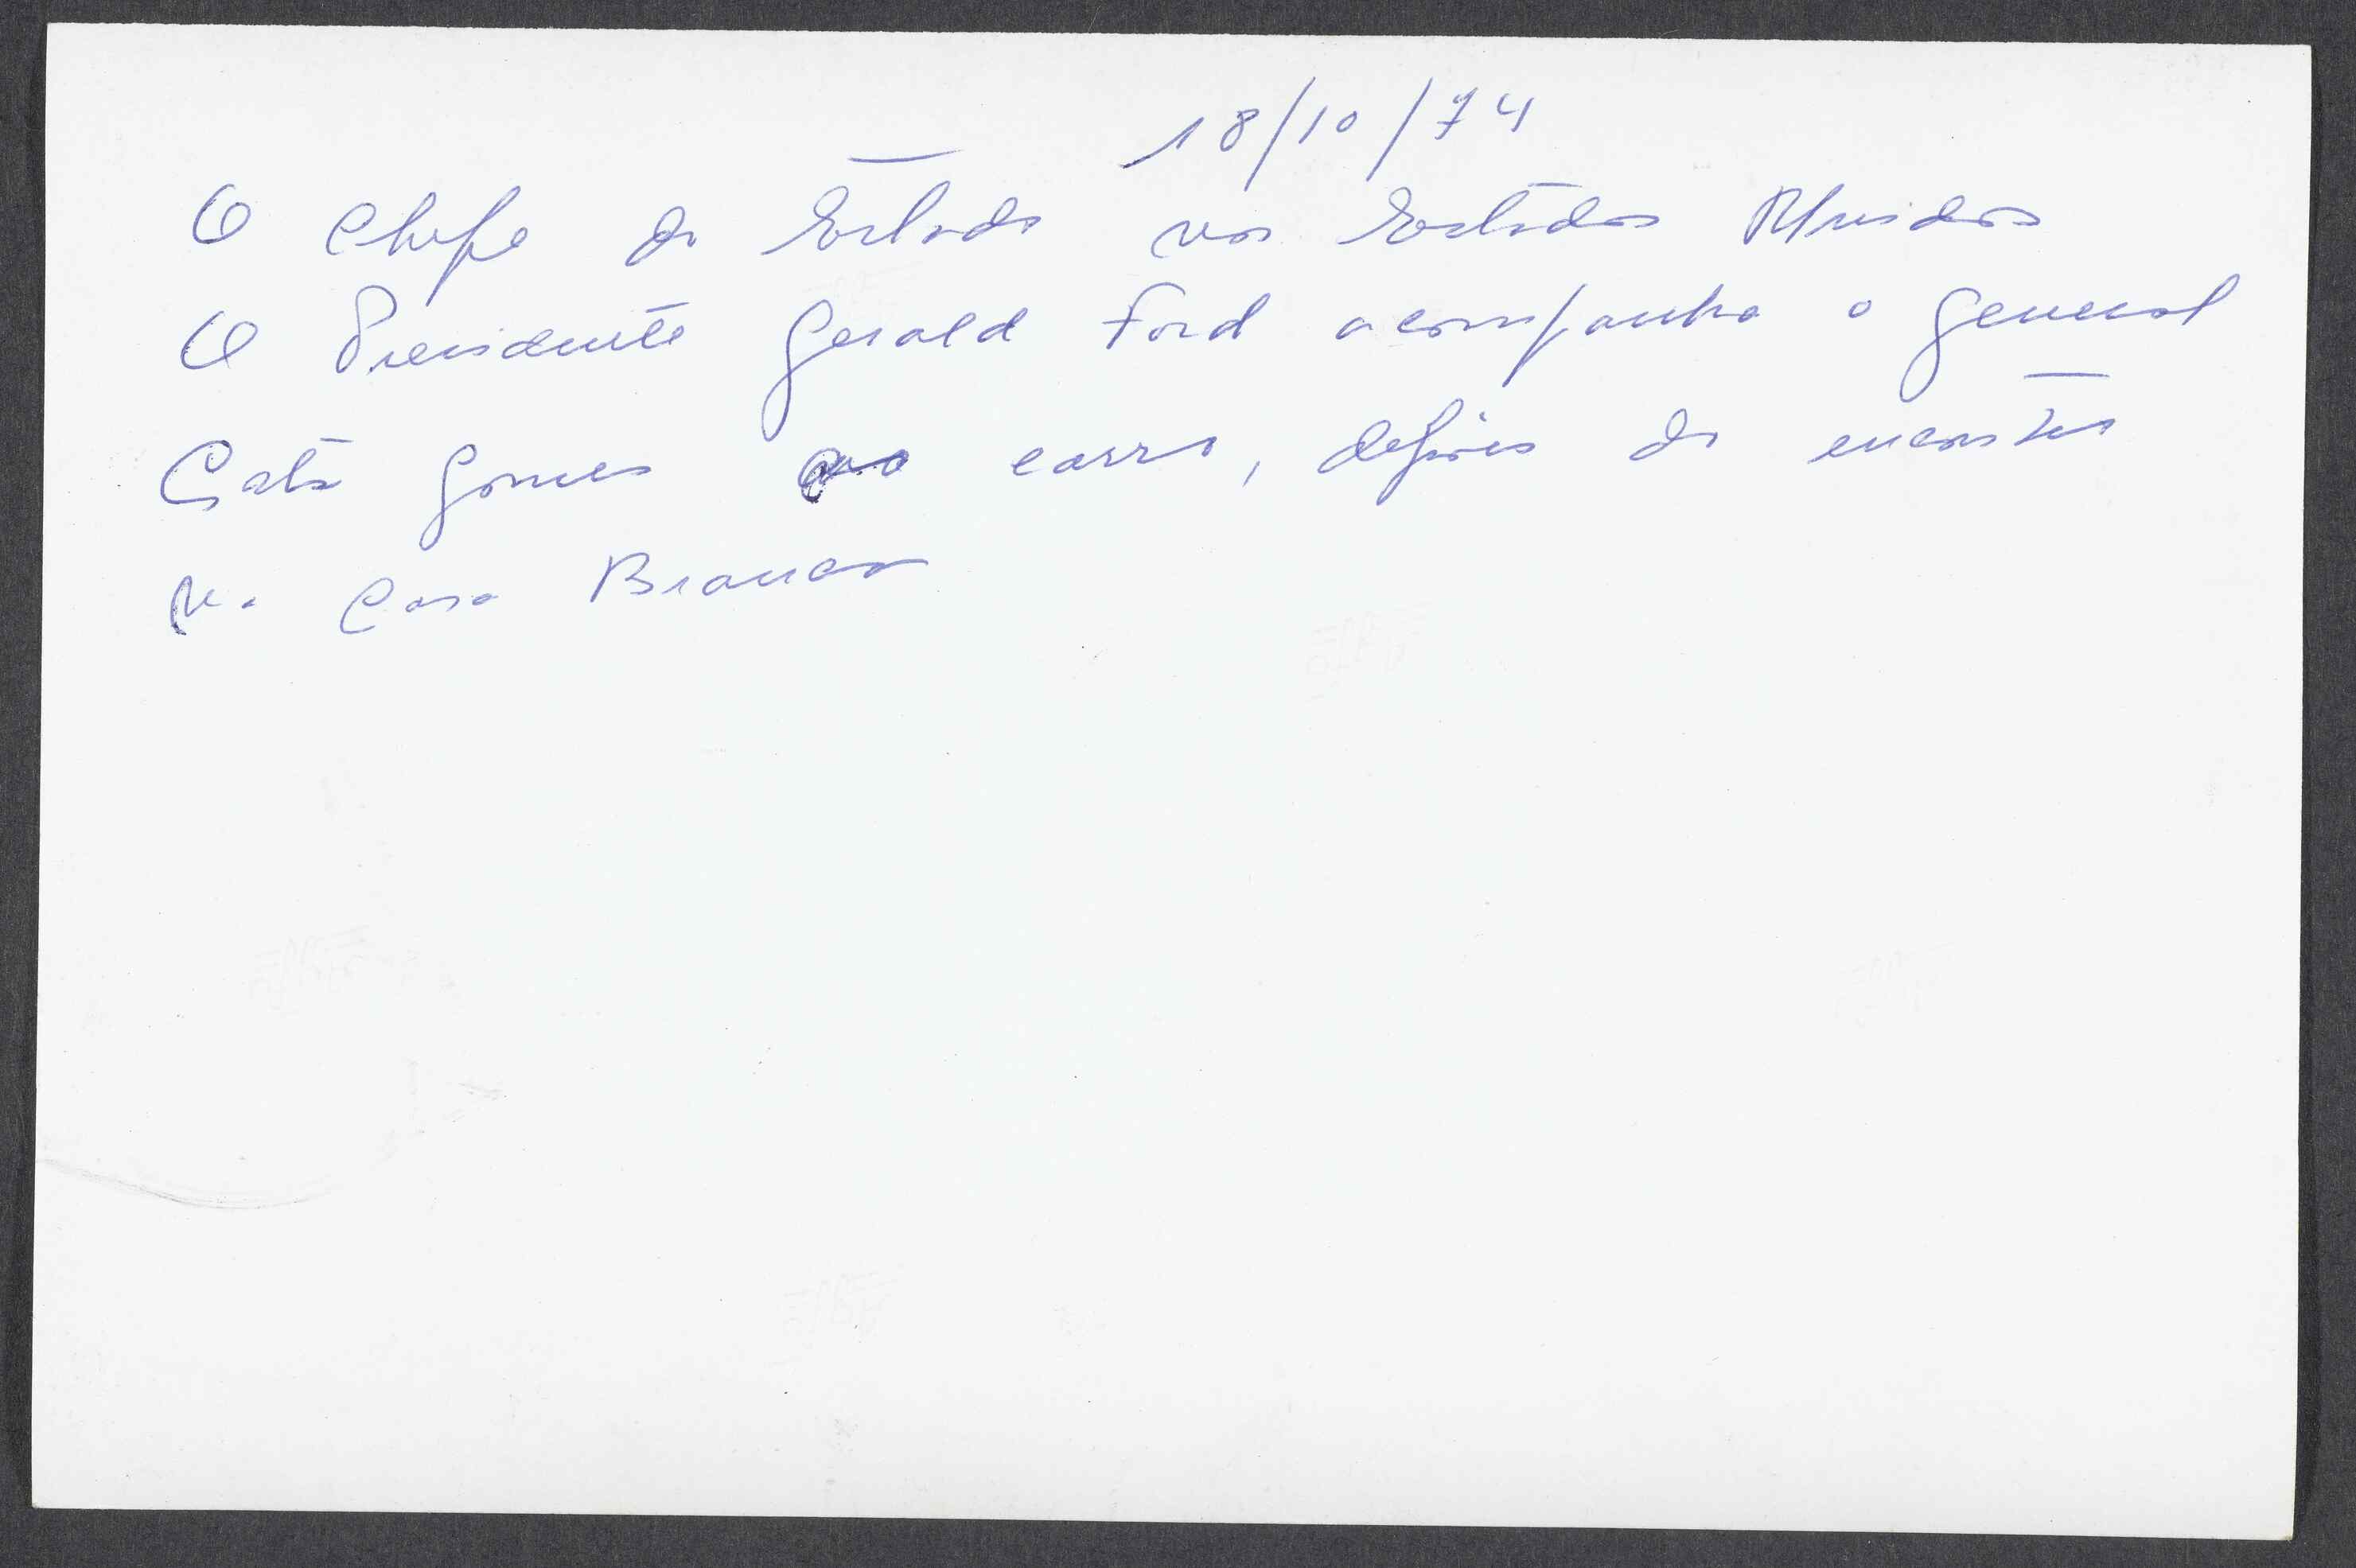 18/10/74
O Chefe do Estado nos Estados Unidos
O Presidente Gerald Ford acompanha o general
Costa Gomes ao carro, depois do encontro
na Casa Branca